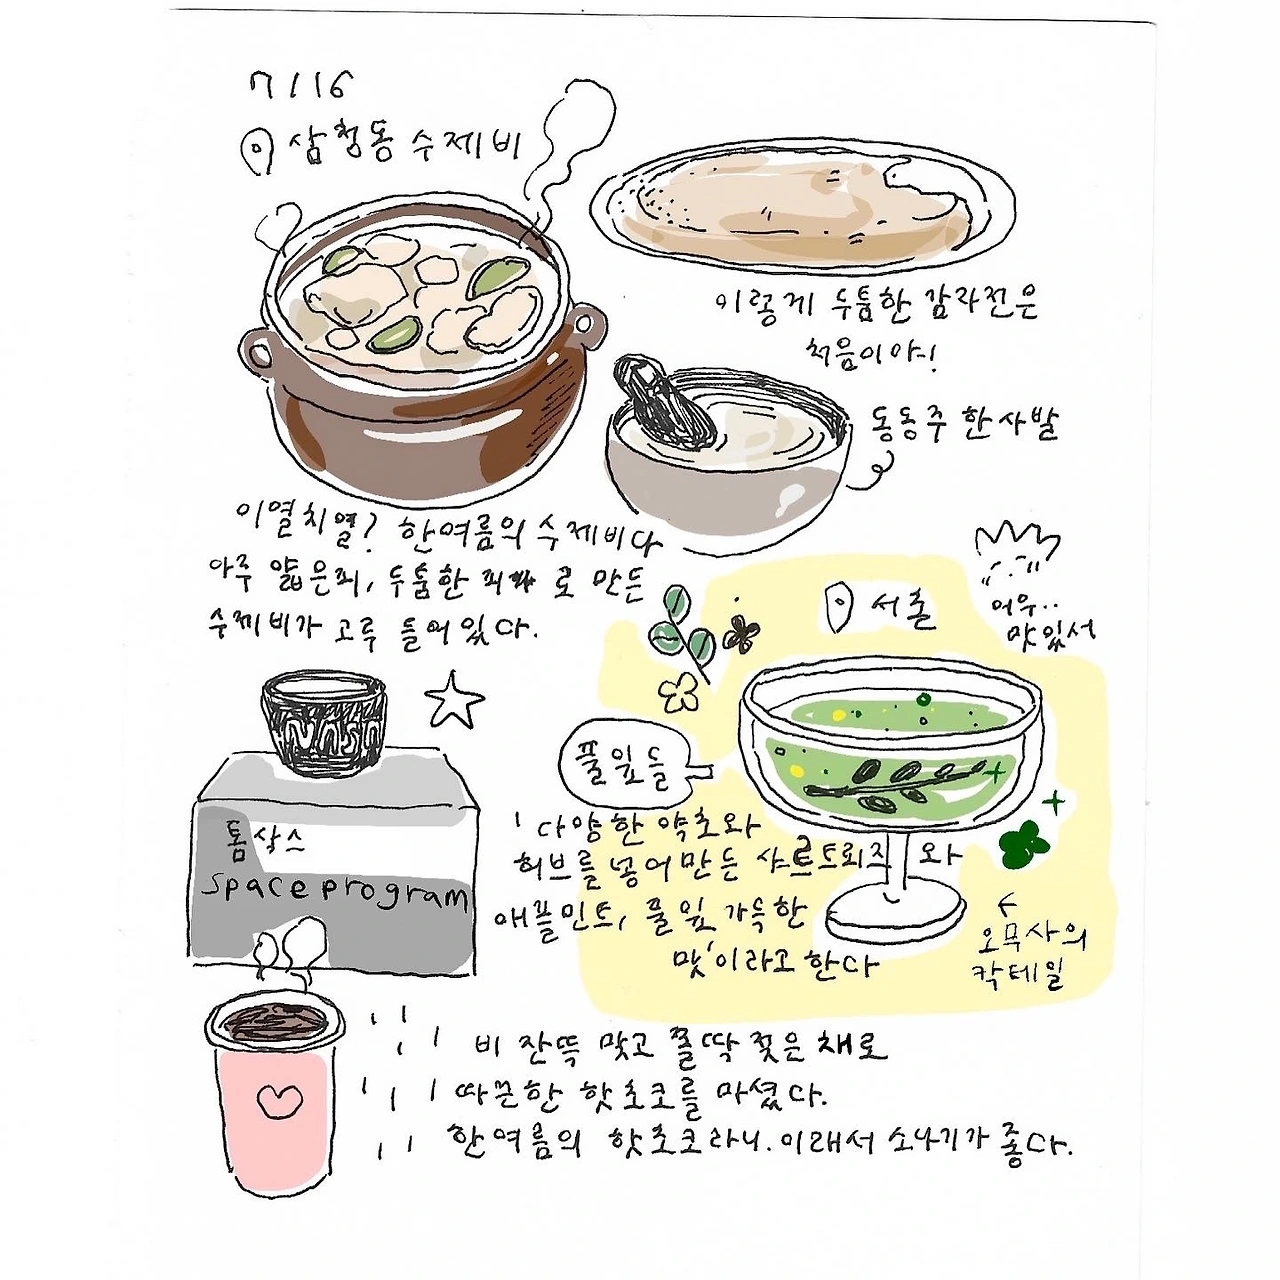 7/16
삼청동 수제비
이렇게 두툼한 감자전은
처음이야!
동동주 한사발
이열치열? 한여름의 수제비다
아주 얇은피, 두툼한 피 로 만든
수제비가 고루 들어있다.
서촌
어우..
맛있서
NASA
톰삭스
space program
풀잎들
'다양한 약초와
허브를 넣어만든 샤르트뢰즈 와
애플민트, 풀잎 가득한
맛'이라고 한다
오무사의
칵테일
비 잔뜩 맞고 쫄딱 젖은 채로
따끈한 핫초코를 마셨다.
한여름의 핫초코라니. 이래서 소나기가 좋다.